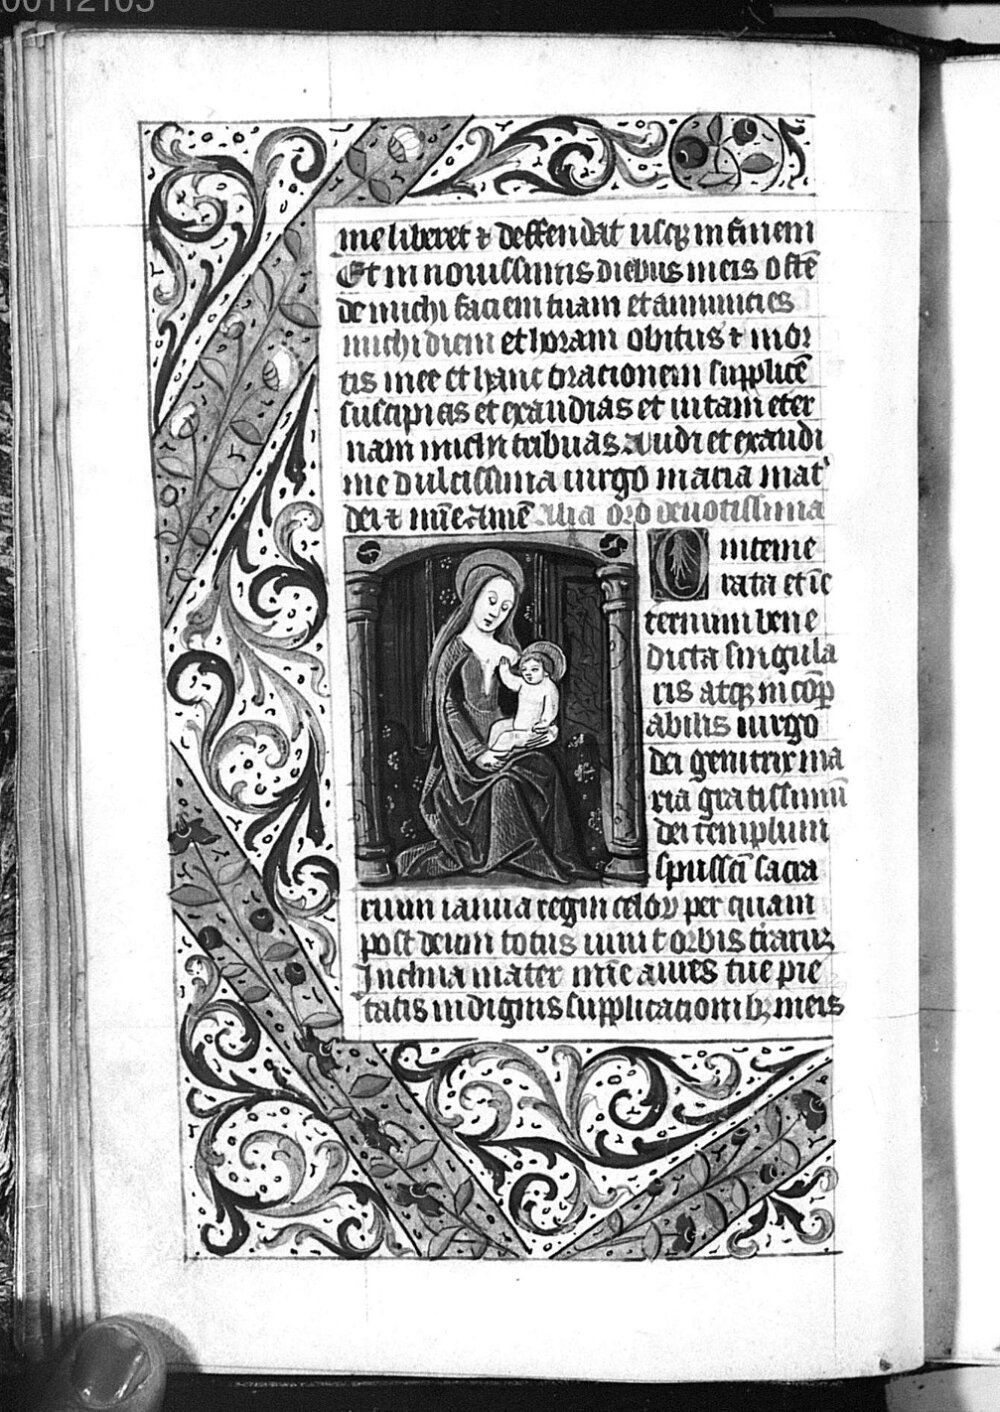 00112105
me liberet ⁊ deffendat usqꝫ in finem
Et in nouissimis diebus meis oste̅
de michi faciem tuam et annuncies
michi diem et horam obitus ⁊ mor
tis mee et hanc orationem supplice̅
suscipias et exaudias et uitam eter
nam michi tribuas Audi et exaudi
me dulcissima uirgo maria mat'
dei ⁊ mi̅e Ame̅ Alia oro deuotissima
O inteme
rata et i̅e
ternum bene
dicta singula
ris atqꝫ in co̅p
abilis uirgo
dei genitrix ma
ria gratissimu̅
dei templum
spu̅ssci̅ sacra
rium ianua regni celoꝝ per quam
post deum totus uiuit orbis terraruꝫ
Inclina mater mi̅e aures tue pie
tatis indignis supplicationibꝫ meis